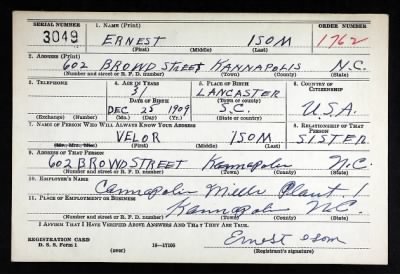 SERIAL NUMBER 1. NAME (Print) ORDER NUMBER
3049 ERNEST ISOM 1762
(First) (Middle) (Last)
2. ADDRESS (Print)
602 BROWD STREET KANNAPOLIS N.C.
(Number and street or R. F. D. number) (Town) (County) (State)
3. TELEPHONE 4. AGE IN YEARS 5. PLACE OF BIRTH 6. COUNTRY OF CITIZENSHIP
31 LANCASTER
DATE OF BIRTH (Town or county)
DEC 25 1909 S.C. U.S.A.
(Exchange) (Number) (Mo.) (Day) (Yr.) (State or country)
7. NAME OF PERSON WHO WILL ALWAYS KNOW YOUR ADDRESS 8. RELATIONSHIP OF THAT PERSON
VELOR ISOM SISTER
(Mr., Mrs., Miss) (First) (Middle) (Last)
9. ADDRESS OF THAT PERSON
602 BROWD STREET Kannapolis N.C.
(Number and street or R. F. D. number) (Town) (County) (State)
10. EMPLOYER'S NAME
Cannapolis Mills Plant 1
11. PLACE OF EMPLOYMENT OR BUSINESS
Kannapolis N.C.
(Number and street or R. F. D. number) (Town) (County) (State)
I AFFIRM THAT I HAVE VERIFIED ABOVE ANSWERS AND THAT THEY ARE TRUE.
Ernest Isom
REGISTRATION CARD
D. S. S. Form 1 (over) 16—17105 (Registrant's signature)